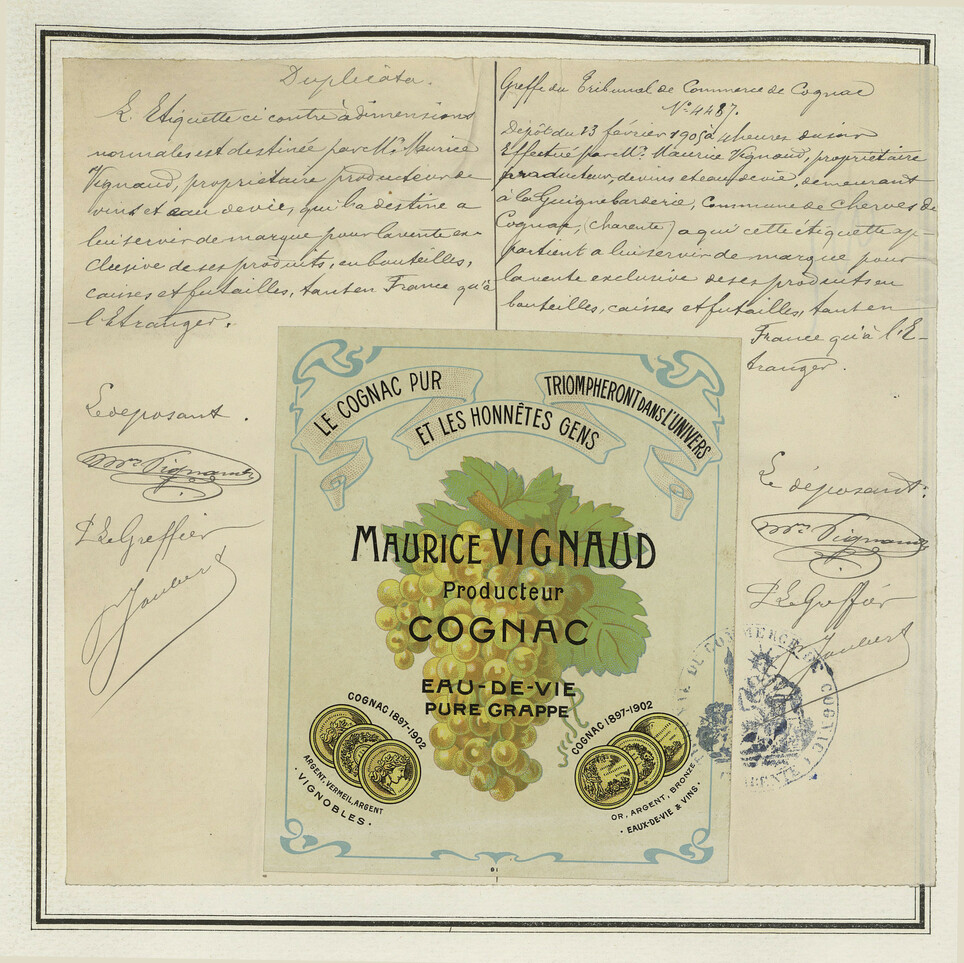 Duplicata.
L'Etiquette ci contre à dimensions
normales est destinée par Mr. Maurice
Vignaud, propriétaire producteur de
vins et eau de vie, qui l'a destine a
lui servir de marque pour la vente ex-
clusive de ses produits, en bouteilles,
caisses et futailles, tant en France qu'à
l'Etranger.
Le déposant.
Mce Vignaud
P. Le Greffier
Joubert
Greffe du Tribunal de Commerce de Cognac
No. 4487.
Dépôt du 23 février 1905 à 4 heures du soir
Effectué par Mr. Maurice Vignaud, propriétaire
producteur, de vins et eau de vie, demeurant
à la Guignebarderie, Commune de Cherves de
Cognac, (Charente) a qui cette étiquette ap-
partient a lui servir de marque pour
la vente exclusive de ses produits en
bouteilles, caisses et futailles, tant en
France qu'à l'E-
tranger.
Le déposant:
Mce Vignaud
P. Le Greffier
Joubert
LE COGNAC PUR
ET LES HONNÊTES GENS
TRIOMPHERONT DANS L'UNIVERS
MAURICE VIGNAUD
Producteur
COGNAC
EAU-DE-VIE
PURE GRAPPE
COGNAC 1897-1902
ARGENT, VERMEIL, ARGENT
·VIGNOBLES·
COGNAC 1897-1902
OR, ARGENT, BRONZE
·EAUX-DE-VIE & VINS·
DU COMMERCE DE COGNAC